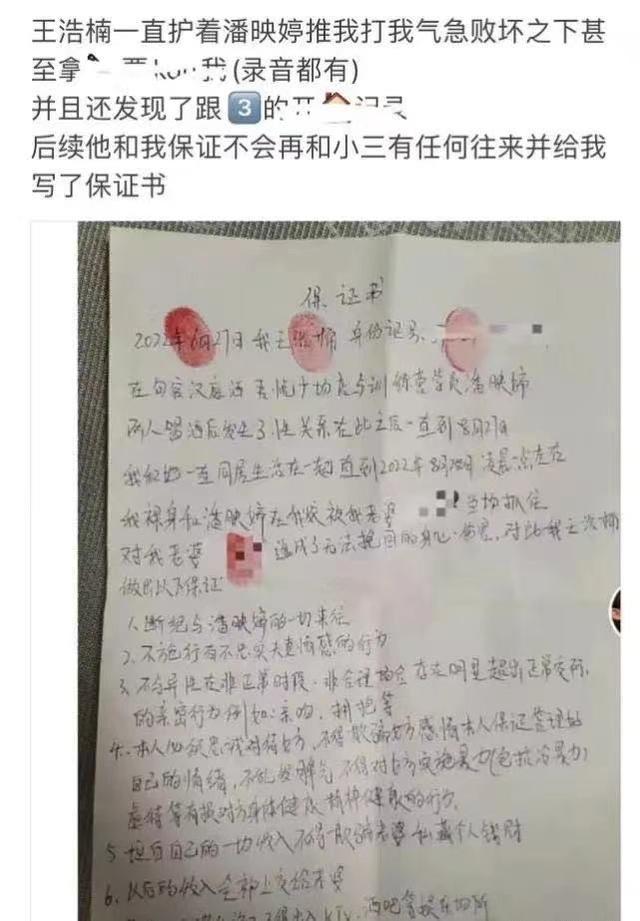 王浩楠一直护着潘映婷推我打我气急败坏之下甚
至拿 我(录音都有)
并且还发现了跟3的开🏠记录
后续他和我保证不会再和小三有任何往来并给我
写了保证书
保证书
2022年6月27日我王浩楠 身份证号
在句容汉庭酒 与训练营学员潘映婷
两人喝酒后发生了性关系在此之后一直到8月27日
我和她一直同居生活在一起直到2022年8月28日凌晨一点左右
我裸身和潘映婷在我家被我老婆 当场抓住
对我老婆 造成了无法挽回的身心伤害,对此我王浩楠
做出以下保证
1.断绝与潘映婷的一切来往
2.不施行有不忠实夫妻情感的行为
3.不与异性在非正常时段、非合理场合存在明显超出正常交际
的亲密行为例如:亲吻、拥抱等
4.本人 对待女方,不得欺骗女方感情本人保证管理好
自己的情绪,不乱发脾气不得对女方实施暴力(包括冷暴力)
虐待等有损对方身体健康精神健康的行为
5.坦白自己的一切收入不得欺骗老婆私藏个人钱财
6.以后的收入全部上交给老婆
不得出入KTV、酒吧等娱乐场所